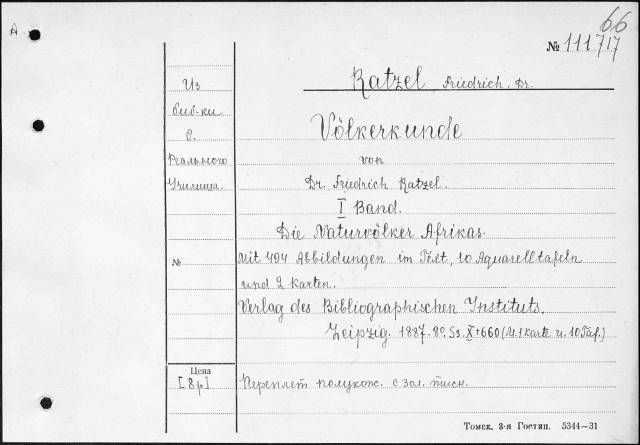 A
66
№ 111717
Из
биб-ки
б.
Реального
Училища.
Ratzel, Friedrich, Dr.
Völkerkunde
von
Dr. Friedrich Ratzel.
I Band.
Die Naturvölker Afrikas.
№
Mit 494 Abbildungen im Text, 10 Aquarelltafeln
und 2 Karten.
Verlag des Bibliographischen Instituts.
Leipzig. 1887. 8º. Ss. X+660 (M. 1 Karte u. 10 Taf.)
Цена
[8р]
Переплет полукож. с зол. тисн.
Томск. 3-я Гостип. 5344—31